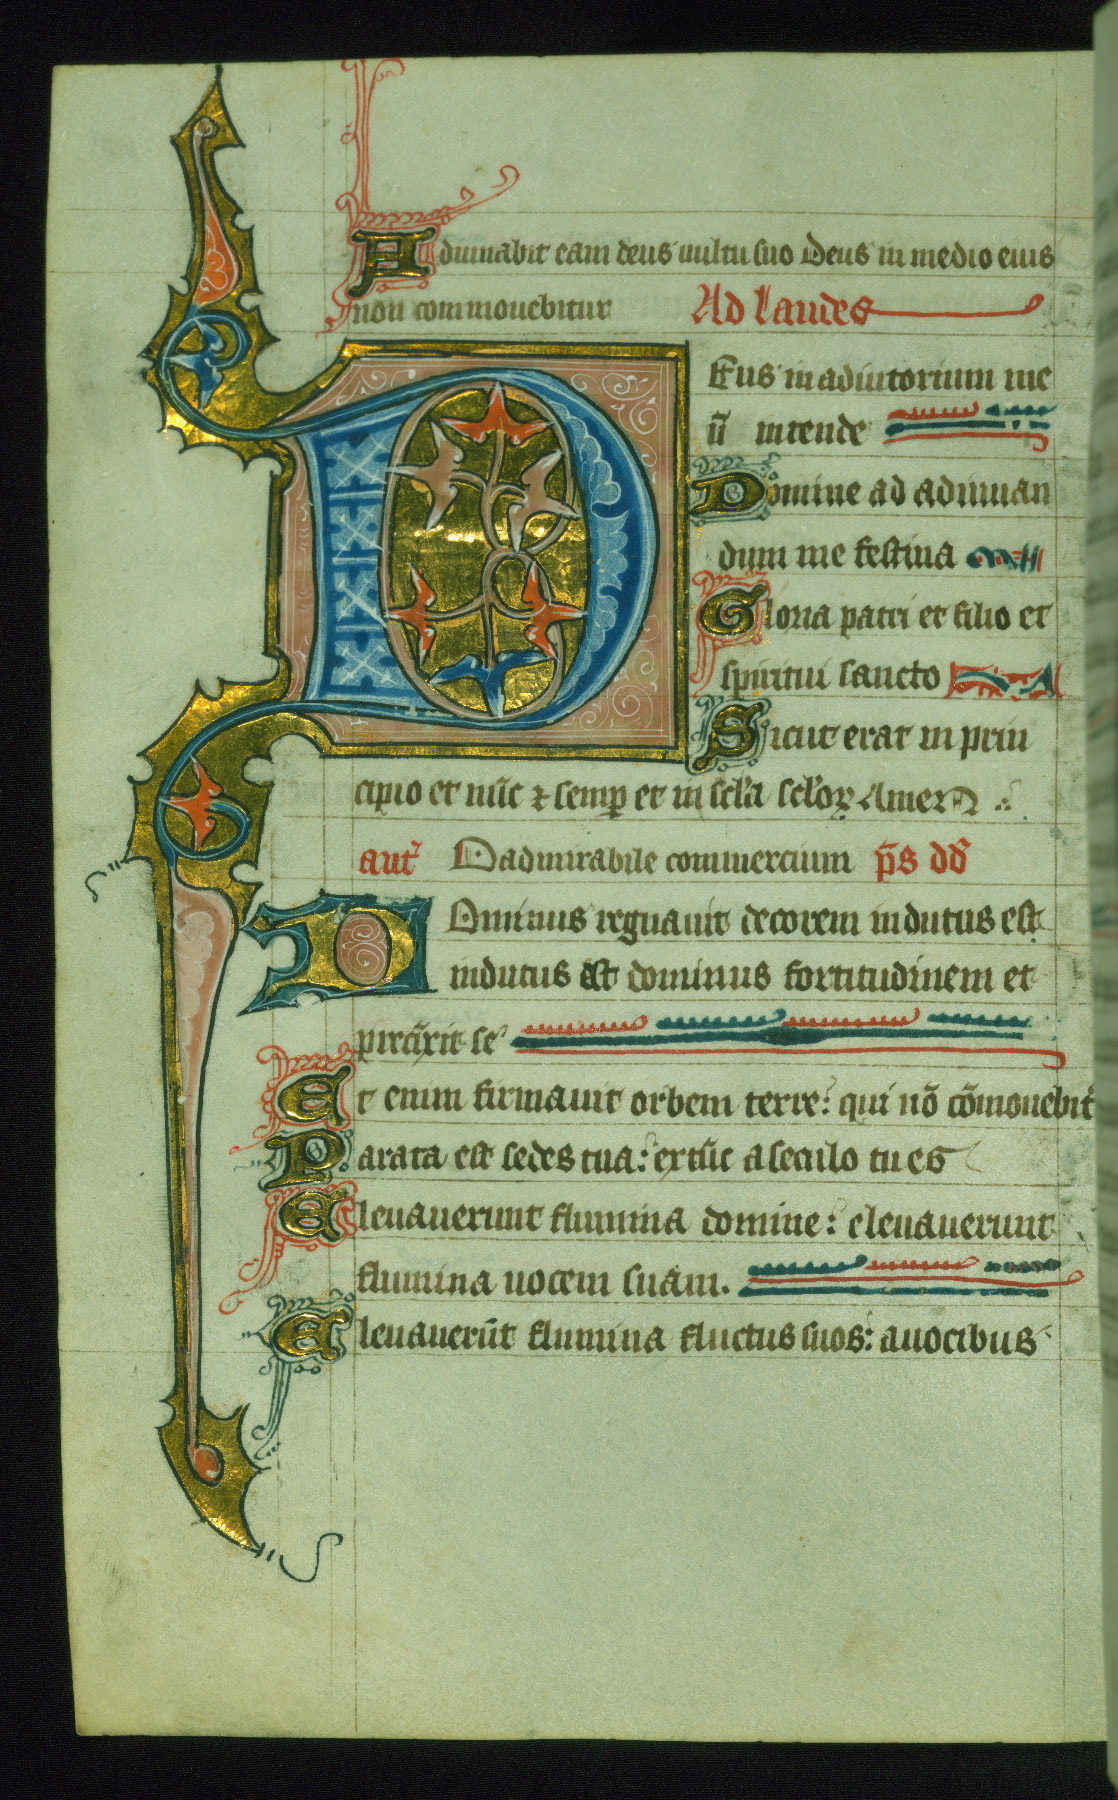 Adiuuabit eam deus uultu suo Deus in medio eius
non commouebitur Ad laudes
DEus in adiutorium me
ũ intende
Domine ad adiuuan
dum me festina
Gloria patri et filio et
spiritui sancto
Sicut erat in prin
cipio et nũc ⁊ semꝑ et in scl̃a scl̃oꝝ Amen
ant̉ O admirabile commercium p̃s dd̃
DOminus regnauit decorem indutus est
indutus est dominus fortitudinem et
precĩxit se
Et enim firmauit orbem terre: qui nõ cõmouebit̉
Parata est sedes tua: ex tũc a seculo tu es
Eleuauerunt flumina domine: eleuauerunt
flumina uocem suam.
Eleuauerũt flumina fluctus suos: a uocibus